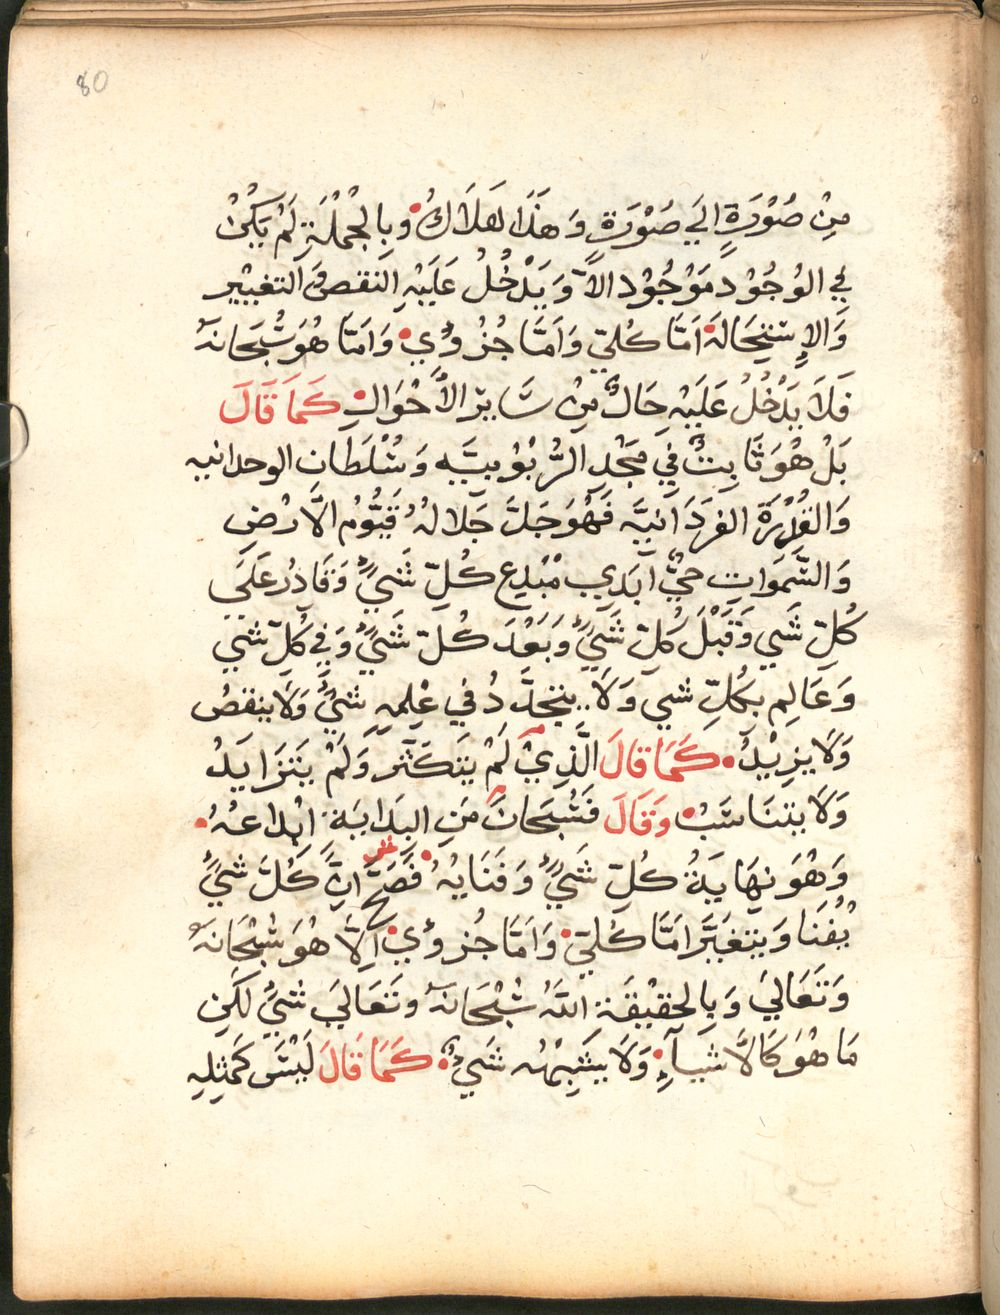 80
مِنْ صُوْرَةٍ اِلَي صُوْرَةٍ وَهَذَا لهَلَاكُ وبِالجُمْلَةِ لَمْ يَكُنْ
فِي الوُجُوْد مَوْجُوْد الاَّ وَيَدْخُلُ عَلَيْهِ النقص وَالتغيِيْير
وَالاِسْتِحَالَة اَمَّا كُلّيّ وَاَمَّا جُزُوْيّ وَاَمَّا هُوَ سُبْحَانهُ
فَلَا يَدْخُلُ عَلَيْهِ حَالٌ مِنْ سَايرِ الاَحْوَالِ كَمَا قَالَ
بَلْ هُوَ ثَابِتٌ فِي مَجْدِ الرُّبُوْبيَّه وَسُلْطَانِ الوحدانيه
وَالقُدْرَة الفرَدَانيَّه فَهُوَ جَلَّ جَلَالهُ قَيُّوْم الاَرْض
وَالسَّمَوَاتِ حَيٌّ اَبَدِي مُبْدِع كُلِّ شَيٍ وَقَادُر عَلَي
كُلّ شَي وَقَبْلَ كُلّ شَيٍ وَبَعْدَ كُلّ شَيٍ وَفِي كُلّ شي
وَعَالِم بكُلِّ شي وَلَا يتجدَّدُ في عِلمِهِ شيٌ وَلَا ينقصُ
وَلَا يزِيْدُ كَمَا قالَ الَّذِيْ لَمْ يَتكَثّر وَلَمْ يَتزَايَدُ
وَلَا يتنَاسَبُ وَقَالَ فَسُبْحَانَ مَنِ البِدَايَة اِبْدَاعهُ
وَهُوَ نِهَايَةُ كُلِّ شَيٍ وَفَنَايهُ فَصَحَّ اَنَّ كُلَّ شَيٍ
يُفنَا وَيَتغيَّر امَّا كُلّيّ وَاَمَّا جُزوْيّ اِلاَّ هُوَ سُبْحَانهُ
وَتَعَالَي وَبِالحقِيْقَة اللّهُ سُبْحَانهُ وتَعَالَي شيٌ لَكِن
مَا هُوَ كَالاَشيآءِ وَلَا يشبِهُه شَيٌ كَمَا قَالَ لَيْسَ كَمثِلهِ